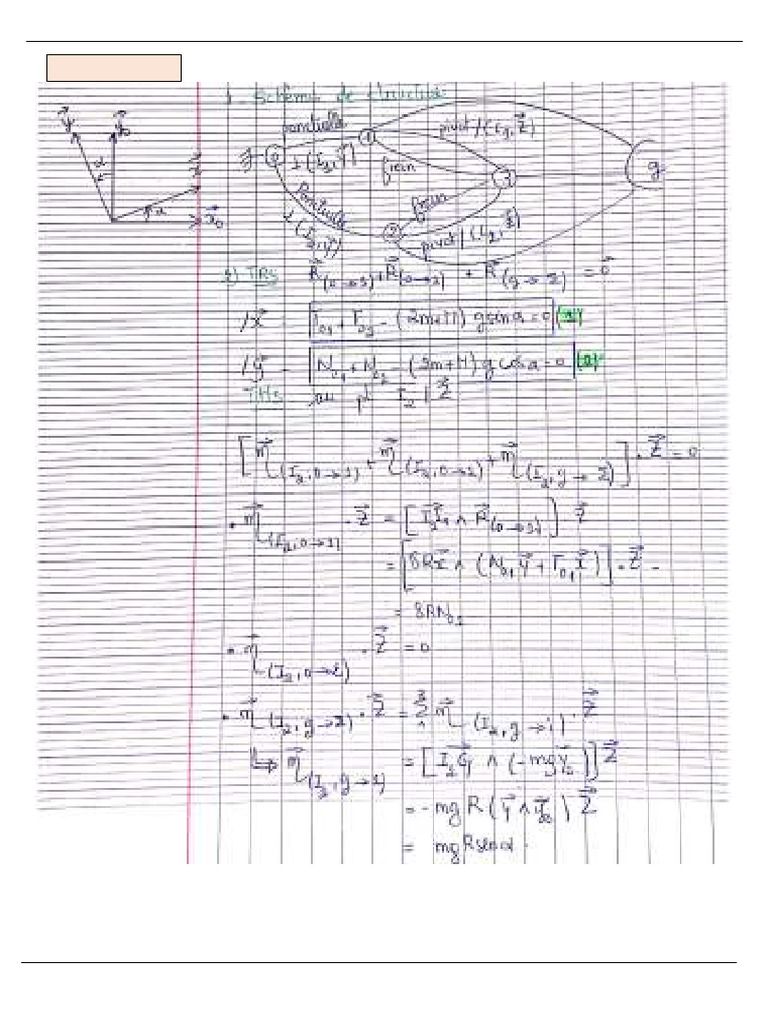 1 - Schéma de structure:
y y₀
α
x
α x₀
ponctuelle
⊥(I₁, y)
1
pivot/(I₁, z)
frein
0
3
g
Ponctuelle
⊥(I₂, y)
frein
2
pivot/(I₂, z)
2) TRS R(0→1) + R(0→2) + R(g→Σ) = 0
/x - T₀₁ + T₀₂ - (2m+M) g sinα = 0 (1)
/y - N₀₁ + N₀₂ - (2m+M) g cosα = 0 (2)
TMS au pt I₂ / z
[m(I₂, 0→1) + m(I₂, 0→2) + m(I₂, g→Σ)] . z = 0
• m(I₂, 0→1) . z = [I₂I₁ ∧ R(0→1)] . z
= [8Rx ∧ (N₀₁ y + T₀₁ x)] . z -
= 8RN₀₁
• m(I₂, 0→2) . z = 0
• m(I₂, g→Σ) . z = Σ m(I₂, g→i) . z
↳ m(I₂, g→1) = [I₂G₁ ∧ (-mg y₀)] z
= -mg R (y ∧ y₀) z
= mg R sinα .